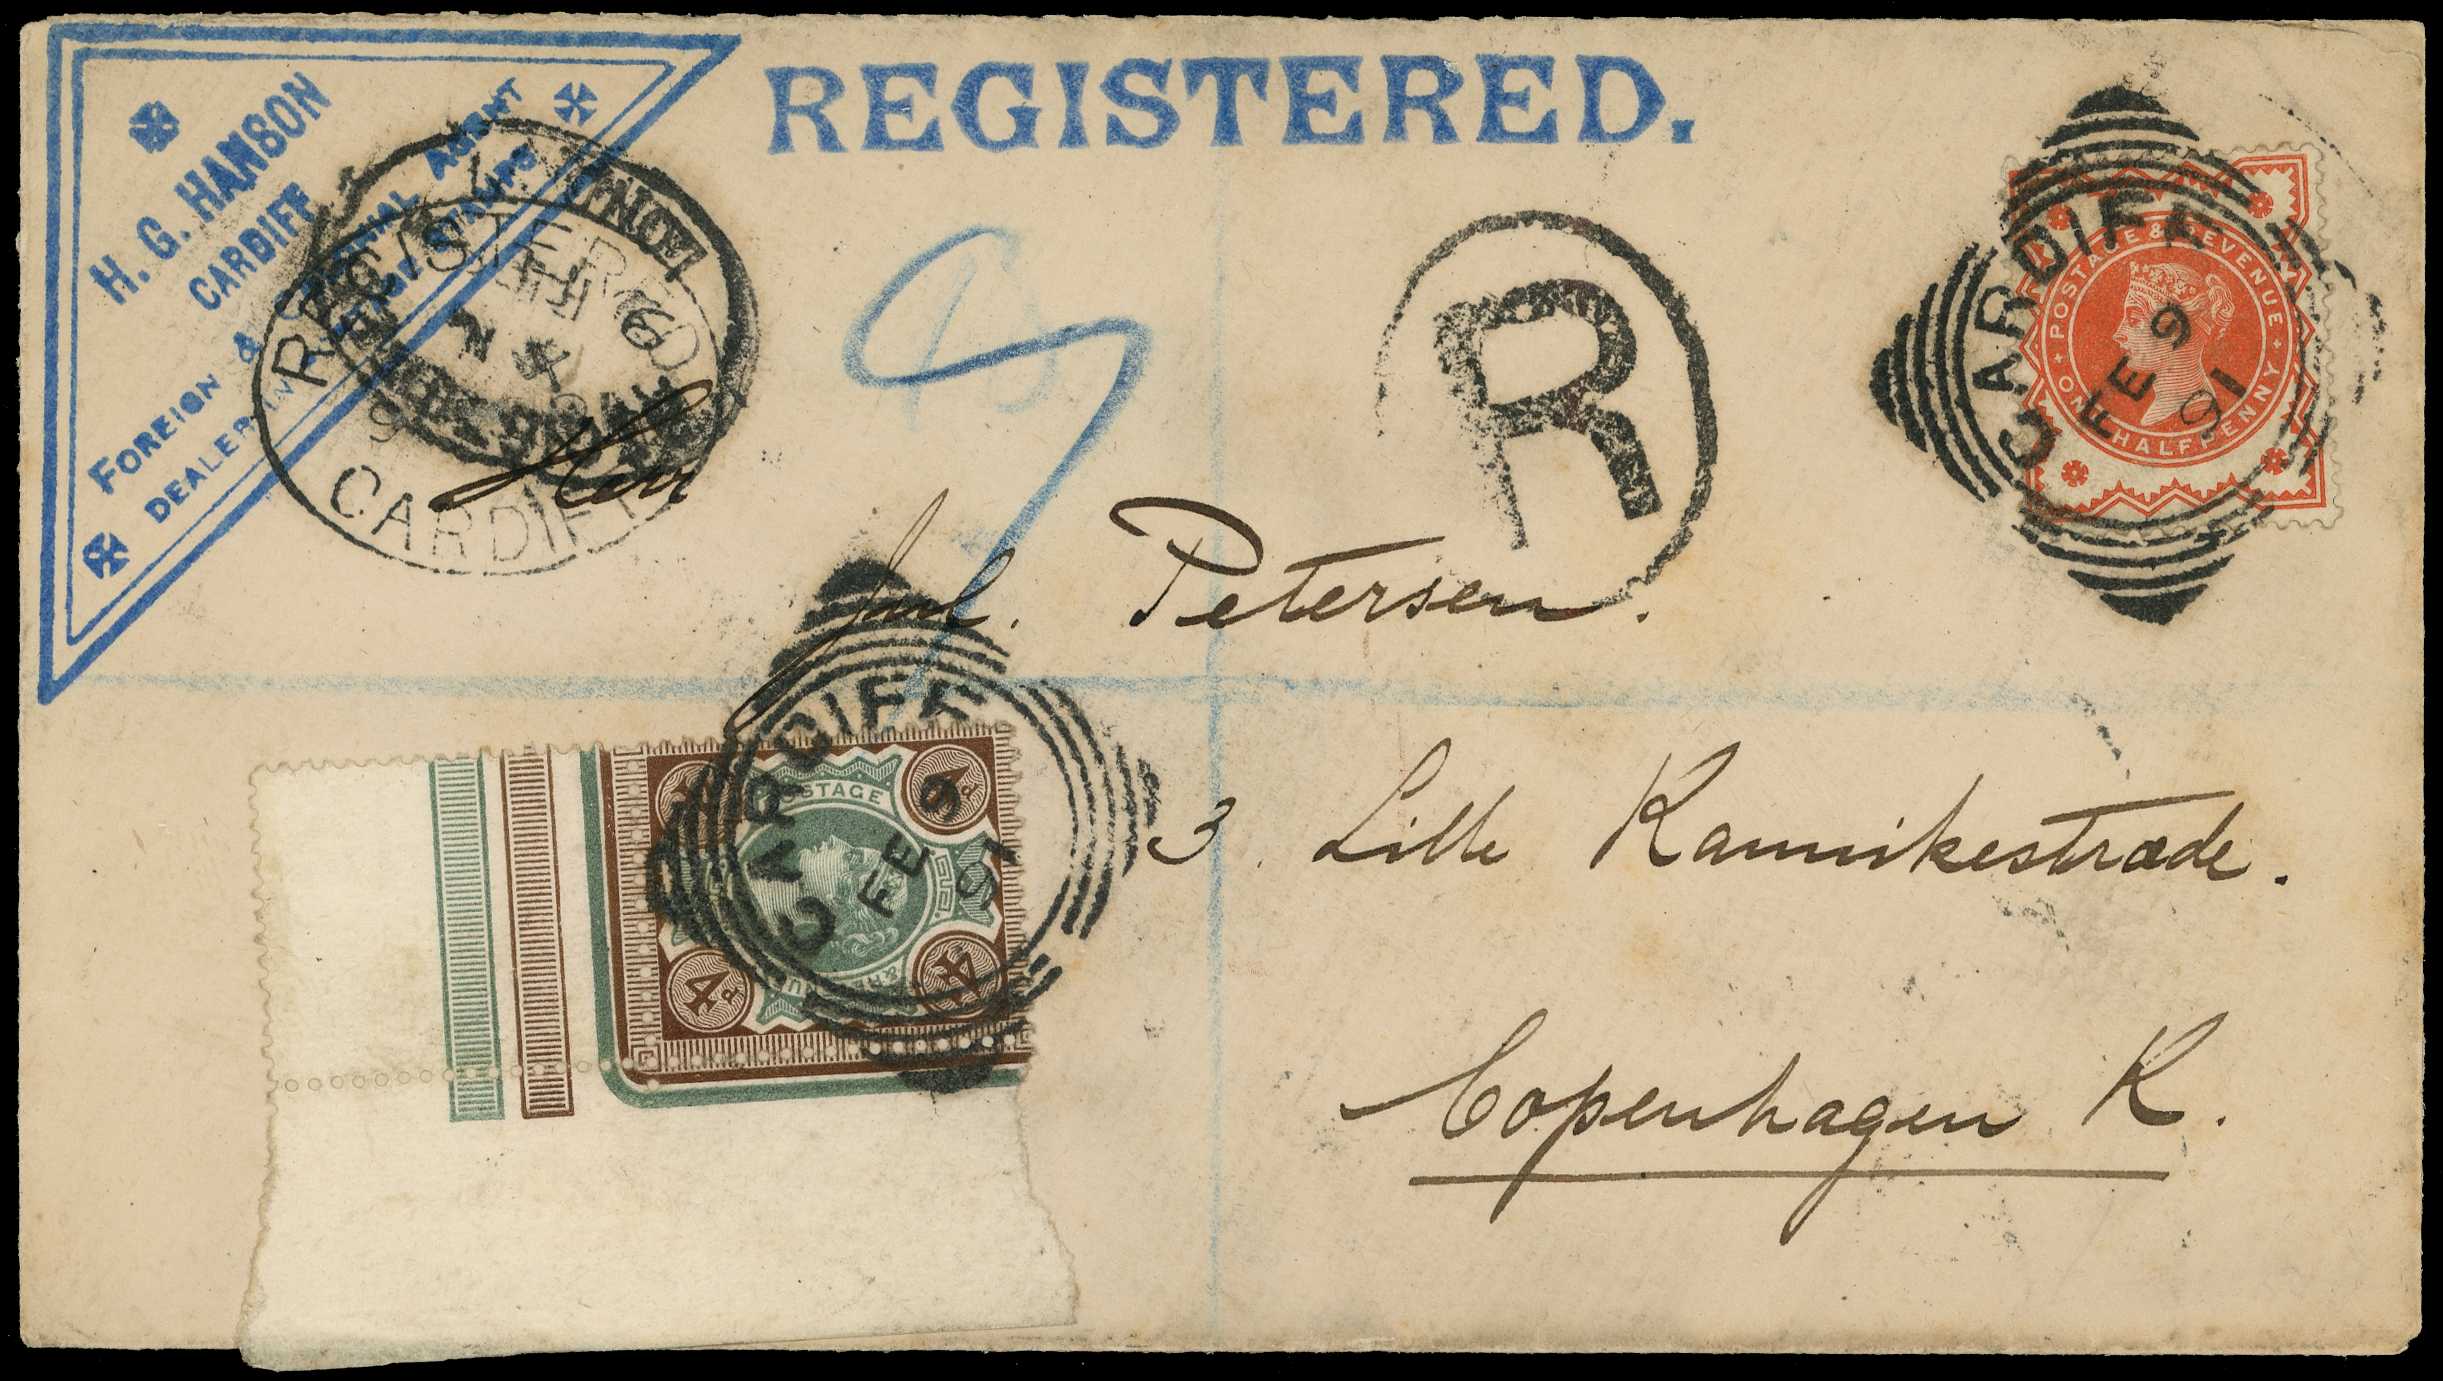 REGISTERED.
H. G. HANSON
CARDIFF
FOREIGN & COLONIAL AGENT
DEALER IN FOREIGN STAMPS
REGISTERED
CARDIFF
R
CARDIFF
FE 9
91
POSTAGE & REVENUE
ONE HALFPENNY
Herr
Jul. Petersen.
3. Lille Kannikestræde.
Copenhagen K.
CARDIFF
FE 9
91
POSTAGE & REVENUE
4d
4d
4d